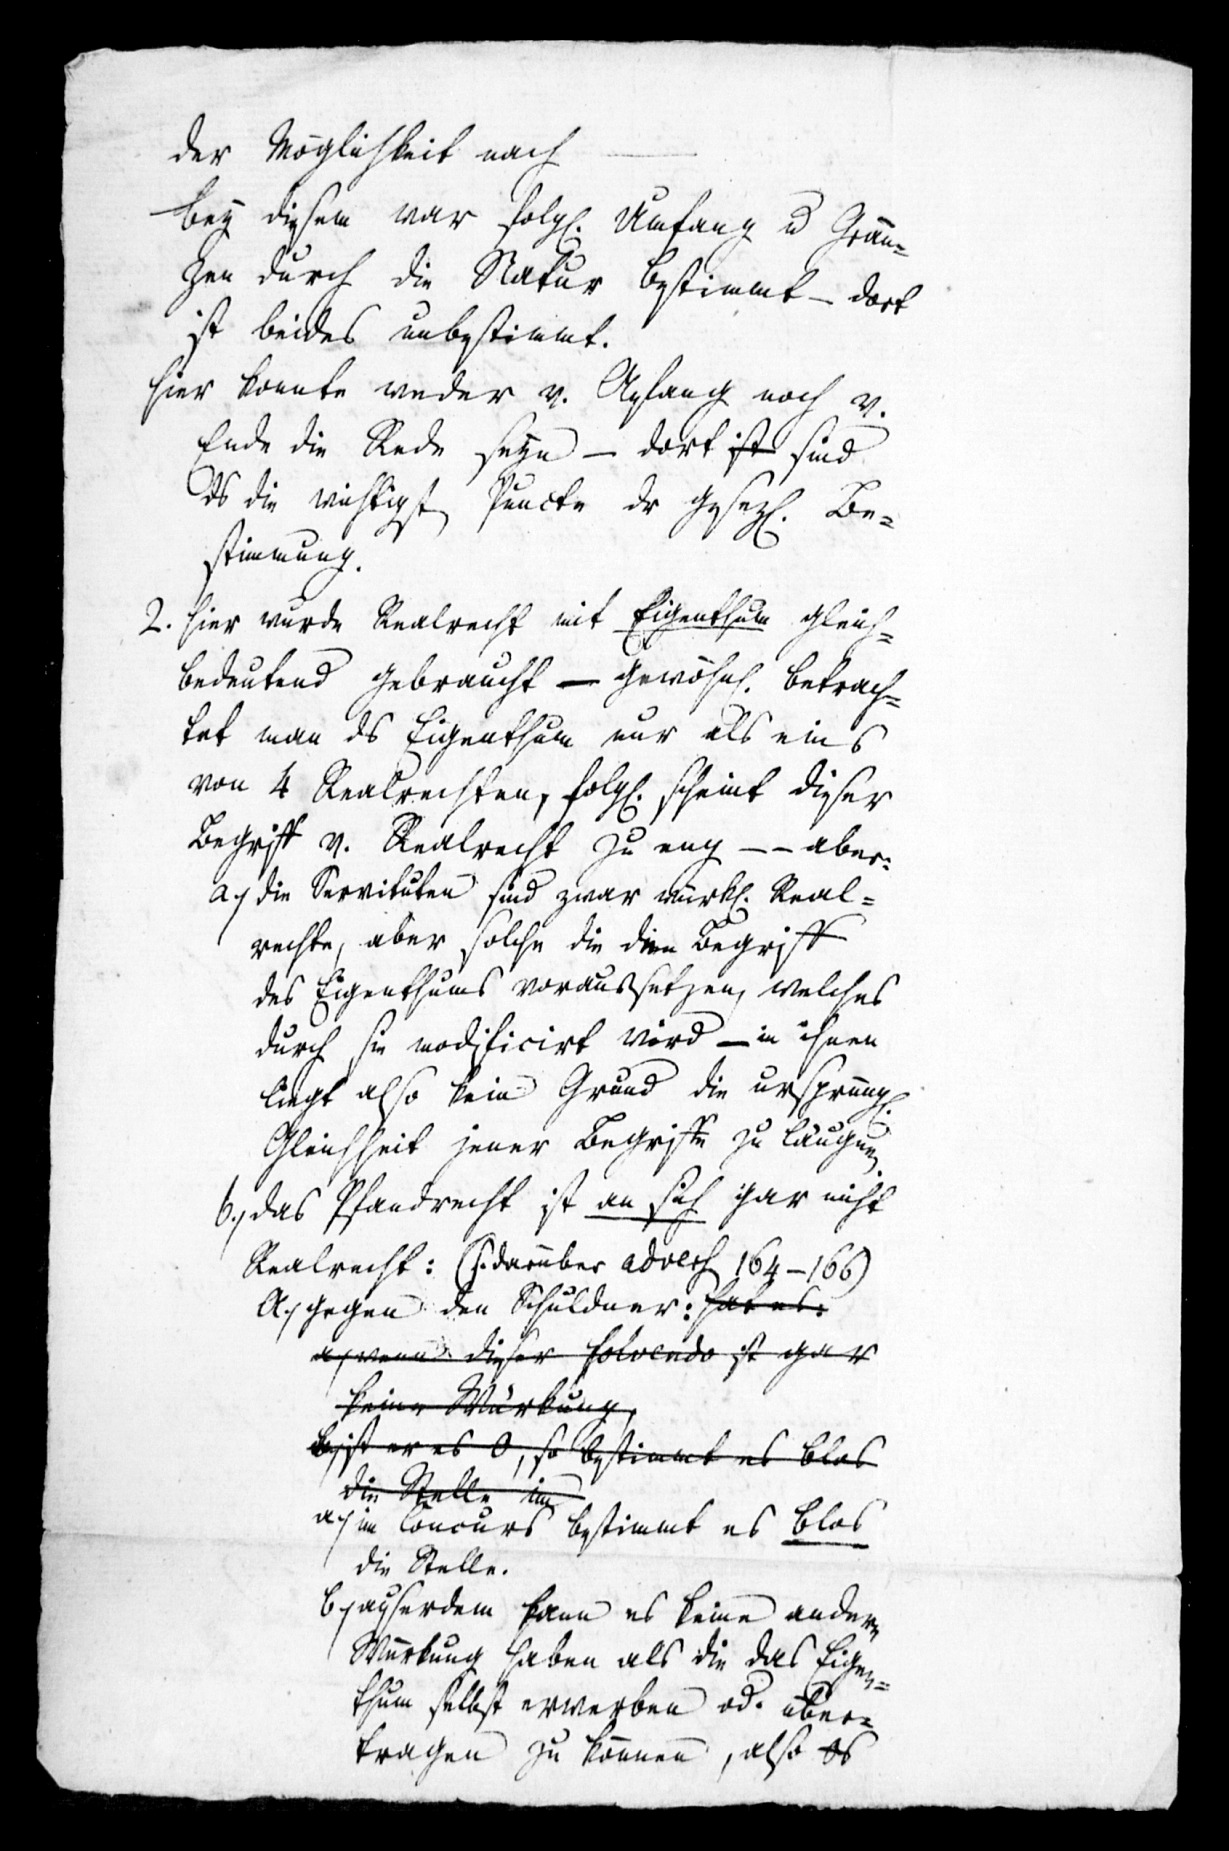 der Möglichkeit nach —
bey diesem war folgl. Umfang u Grän=
zen durch die Natur bestimmt – dort
ist beides unbestimmt.
hier konnte weder v. Anfang noch v.
Ende die Rede seyn – dort ist sind
ds die wichtigst Puncte dr gesezl. Be=
stimmung.
2. hier wurde Realrecht mit Eigenthum gleich=
bedeutend gebraucht — gewöhnl. betrach=
tet man ds Eigenthum nur als eins
von 4 Realrechten, folgl. scheint dieser
Begriff v. Realrecht zu eng – – aber:
a.) die Servituten sind zwar würkl. Real=
rechte, aber solche die den Begriff
des Eigenthums voraussetzen, welches
durch sie modificirt wird – in ihnen
liegt also kein Grund die ursprüngl.
Gleichheit jener Begriffe zu läugnen.
b.) das Pfandrecht ist an sich gar nicht
Realrecht: (s. darüber advers 164–166)
A.) gegen den Schuldner: hat es:
a.) wenn dieser solvendo ist gar
keine Würkung,
b.) ist er es 0, so bestimmt es blos
die Stelle im
a.) im Concurs bestimmt es blos
die Stelle.
b.) ausserdem kann es keine andere
Würkung haben als die das Eigen=
thum selbst erwerben od. über=
tragen zu können, also ds